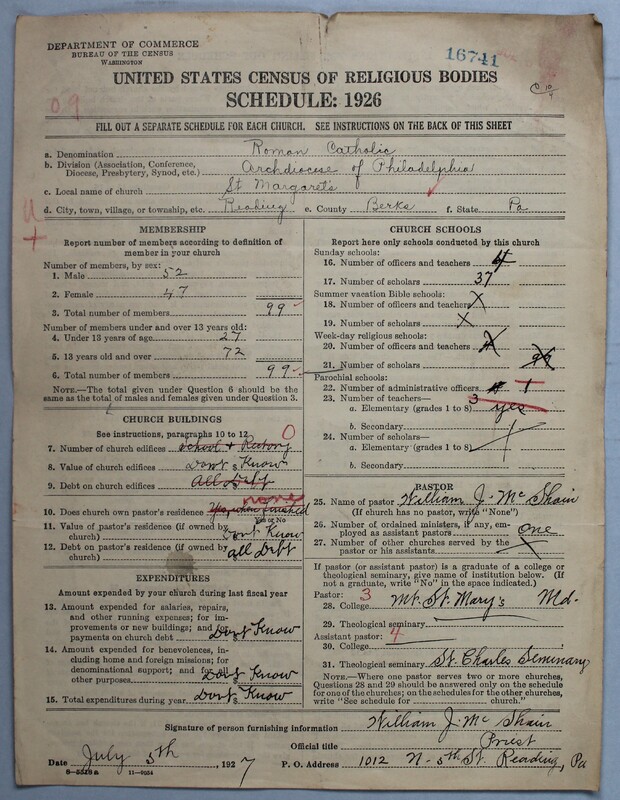 DEPARTMENT OF COMMERCE
BUREAU OF THE CENSUS
WASHINGTON
16741
09
UNITED STATES CENSUS OF RELIGIOUS BODIES
SCHEDULE: 1926
FILL OUT A SEPARATE SCHEDULE FOR EACH CHURCH. SEE INSTRUCTIONS ON THE BACK OF THIS SHEET
a. Denomination Roman Catholic
b. Division (Association, Conference, Diocese, Presbytery, Synod, etc.) Archdiocese of Philadelphia
c. Local name of church St Margaret's
d. City, town, village, or township, etc. Reading e. County Berks f. State Pa
MEMBERSHIP
Report number of members according to definition of
member in your church
Number of members, by sex:
1. Male 52
2. Female 47
3. Total number of members 99
Number of members under and over 13 years old:
4. Under 13 years of age 27
5. 13 years old and over 72
6. Total number of members 99
NOTE.—The total given under Question 6 should be
the same as the total of males and females given under Question 3.
CHURCH BUILDINGS
See instructions, paragraphs 10 to 12
7. Number of church edifices School + Rectory 0
8. Value of church edifices $ Don't Know
9. Debt on church edifices $ All Debt
none
10. Does church own pastor's residence Yes when finished
Yes or No
11. Value of pastor's residence (if owned by
church) $ Don't Know
12. Debt on pastor's residence (if owned by
church) $ all Debt
EXPENDITURES
Amount expended by your church during last fiscal year
13. Amount expended for salaries, repairs,
and other running expenses; for im-
provements or new buildings; and for
payments on church debt $ Don't Know
14. Amount expended for benevolences, in-
cluding home and foreign missions; for
denominational support; and for all
other purposes $ Don't Know
15. Total expenditures during year $ Don't Know
CHURCH SCHOOLS
Report here only schools conducted by this church
Sunday schools:
16. Number of officers and teachers 4
17. Number of scholars 37
Summer vacation Bible schools:
18. Number of officers and teachers X
19. Number of scholars X
Week-day religious schools:
20. Number of officers and teachers
21. Number of scholars
Parochial schools:
22. Number of administrative officers 1
23. Number of teachers— 3
a. Elementary (grades 1 to 8) yes
b. Secondary
24. Number of scholars—
a. Elementary (grades 1 to 8)
b. Secondary
PASTOR
25. Name of pastor William J. McShain
(If church has no pastor, write "None")
26. Number of ordained ministers, if any, em-
ployed as assistant pastors one
27. Number of other churches served by the
pastor or his assistants X
If pastor (or assistant pastor) is a graduate of a college or
theological seminary, give name of institution below. (If
not a graduate, write "No" in the space indicated.)
Pastor: 3
28. College Mt. St. Mary's Md.
29. Theological seminary
Assistant pastor: 4
30. College
31. Theological seminary St. Charles Seminary
NOTE.—Where one pastor serves two or more churches,
Questions 28 and 29 should be answered only on the schedule
for one of the churches; on the schedules for the other churches,
write "See schedule for church."
Signature of person furnishing information William J. McShain
Official title Priest
Date July 5th, 1927 P. O. Address 1012 N. 5th St. Reading, Pa
8-5519a 11-9204